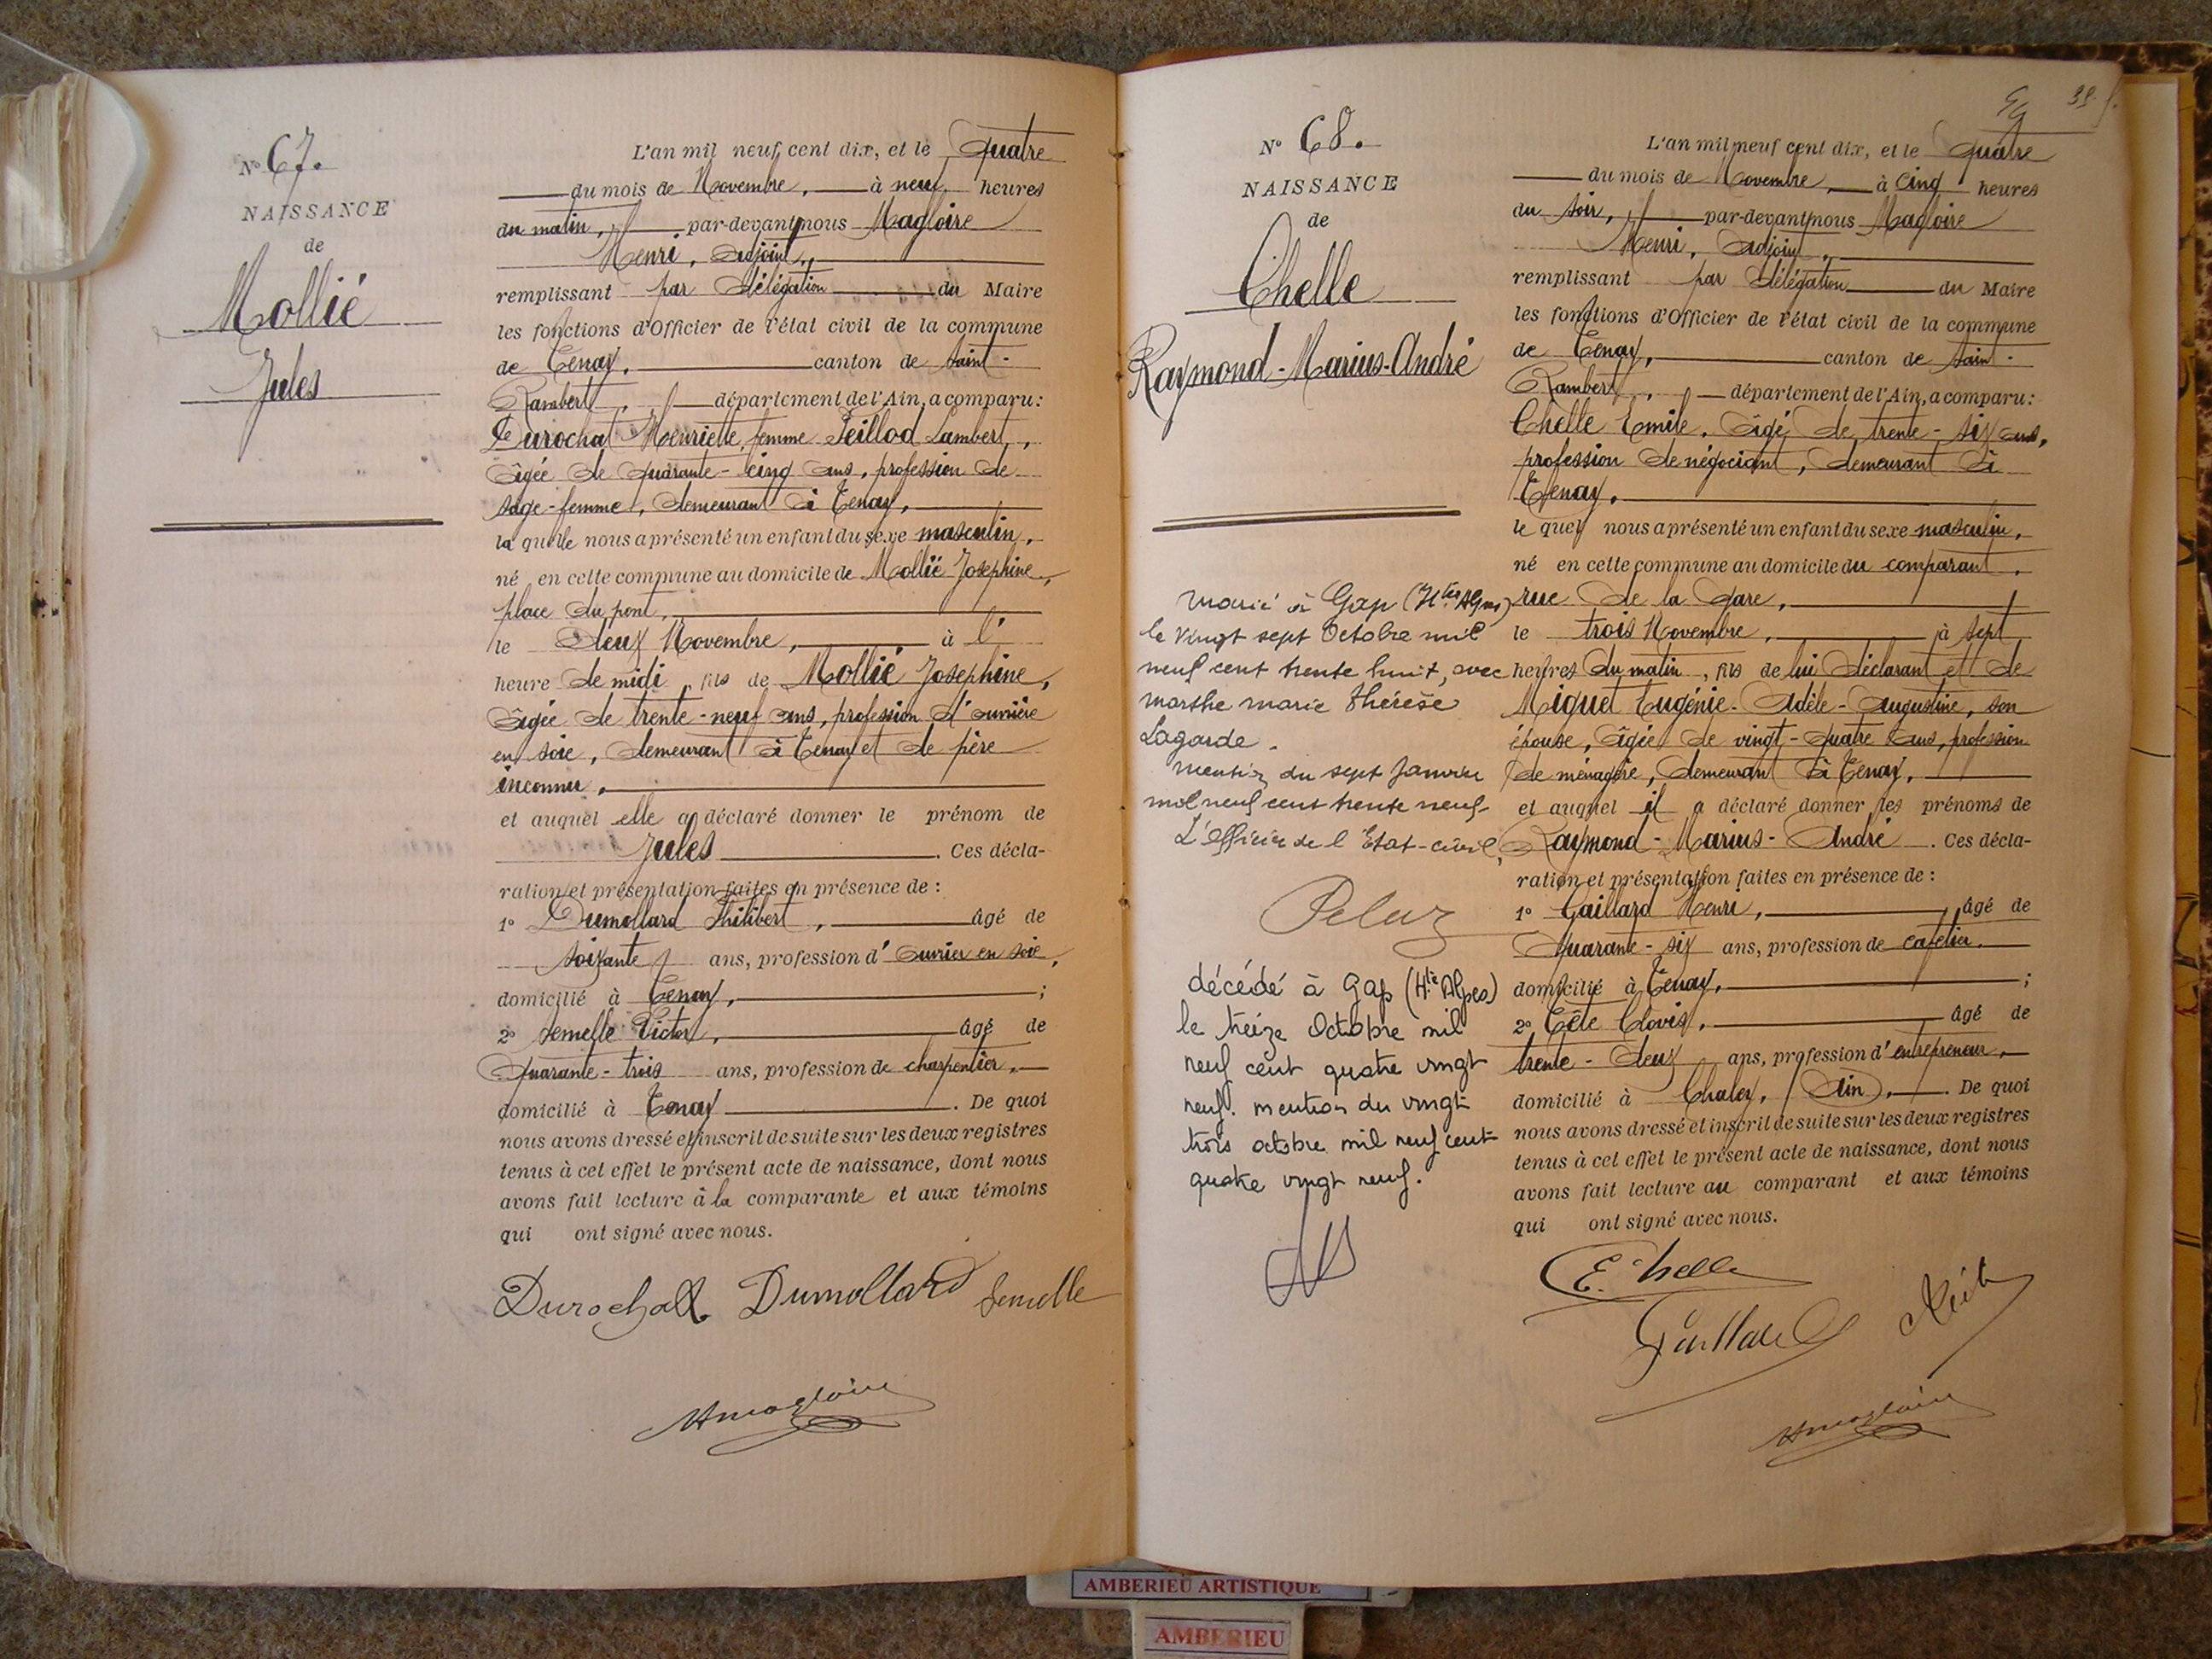 N° 67.
NAISSANCE
de
Mollié
Jules
L'an mil neuf cent dix, et le Quatre
du mois de Novembre, à neuf heures
du matin, par-devant nous Magloire
Henri, adjoint,
remplissant par délégation du Maire
les fonctions d'Officier de l'état civil de la commune
de Tenay, canton de Saint-
Rambert, département de l'Ain, a comparu :
Durochat Henriette, femme Teillod Lambert,
âgée de quarante-cinq ans, profession de
sage-femme, demeurant à Tenay,
la quelle nous a présenté un enfant du sexe masculin,
né en cette commune au domicile de Mollié Josephine,
place du pont,
le deux Novembre, à l'
heure de midi, fils de Mollié Josephine,
âgée de trente-neuf ans, profession d'ouvrière
en soie, demeurant à Tenay et de père
inconnu,
et auquel elle a déclaré donner le prénom de
Jules. Ces décla-
ration et présentation faites en présence de :
1° Dumollard Philibert, âgé de
soixante ans, profession d'ouvrier en soie,
domicilié à Tenay, ;
2° Semelle Victor, âgé de
Quarante-trois ans, profession de charpentier,
domicilié à Tenay. De quoi
nous avons dressé et inscrit de suite sur les deux registres
tenus à cet effet le présent acte de naissance, dont nous
avons fait lecture à la comparante et aux témoins
qui ont signé avec nous.
Durochat Dumollard Semelle
Hmagloire
39
N° 68.
NAISSANCE
de
Chelle
Raymond-Marius-André
Marié à Gap (Htes Alpes)
le vingt sept Octobre mil
neuf cent trente huit, avec
Marthe Marie Thérèse
Lagarde.
Mention du sept Janvier
mil neuf cent trente neuf
L'officier de l'Etat-civil,
Peluz
décédé à Gap (Hte Alpes)
le treize Octobre mil
neuf cent quatre vingt
neuf. mention du vingt
trois octobre mil neuf cent
quatre vingt neuf.
L'an mil neuf cent dix, et le Quatre
du mois de Novembre, à Cinq heures
du soir, par-devant nous Magloire
Henri, adjoint,
remplissant par délégation du Maire
les fonctions d'Officier de l'état civil de la commune
de Tenay, canton de Saint-
Rambert, département de l'Ain, a comparu :
Chelle Emile, âgé de trente-six ans,
profession de négociant, demeurant à
Tenay,
le quel nous a présenté un enfant du sexe masculin,
né en cette commune au domicile du comparant,
rue de la Gare,
le trois Novembre, à sept
heures du matin, fils de lui déclarant et de
Miguet Eugénie-Adèle-Augustine, son
épouse, âgée de vingt-quatre ans, profession
de ménagère, demeurant à Tenay,
et auquel il a déclaré donner les prénoms de
Raymond-Marius-André. Ces décla-
ration et présentation faites en présence de :
1° Gaillard Henri, âgé de
Quarante-six ans, profession de cafetier
domicilié à Tenay, ;
2° Tête Clovis, âgé de
trente-deux ans, profession d'entrepreneur,
domicilié à Chaley, (Ain). De quoi
nous avons dressé et inscrit de suite sur les deux registres
tenus à cet effet le présent acte de naissance, dont nous
avons fait lecture au comparant et aux témoins
qui ont signé avec nous.
E. Chelle
Gaillard
Hmagloire
AMBERIEU ARTISTIQUE
AMBERIEU